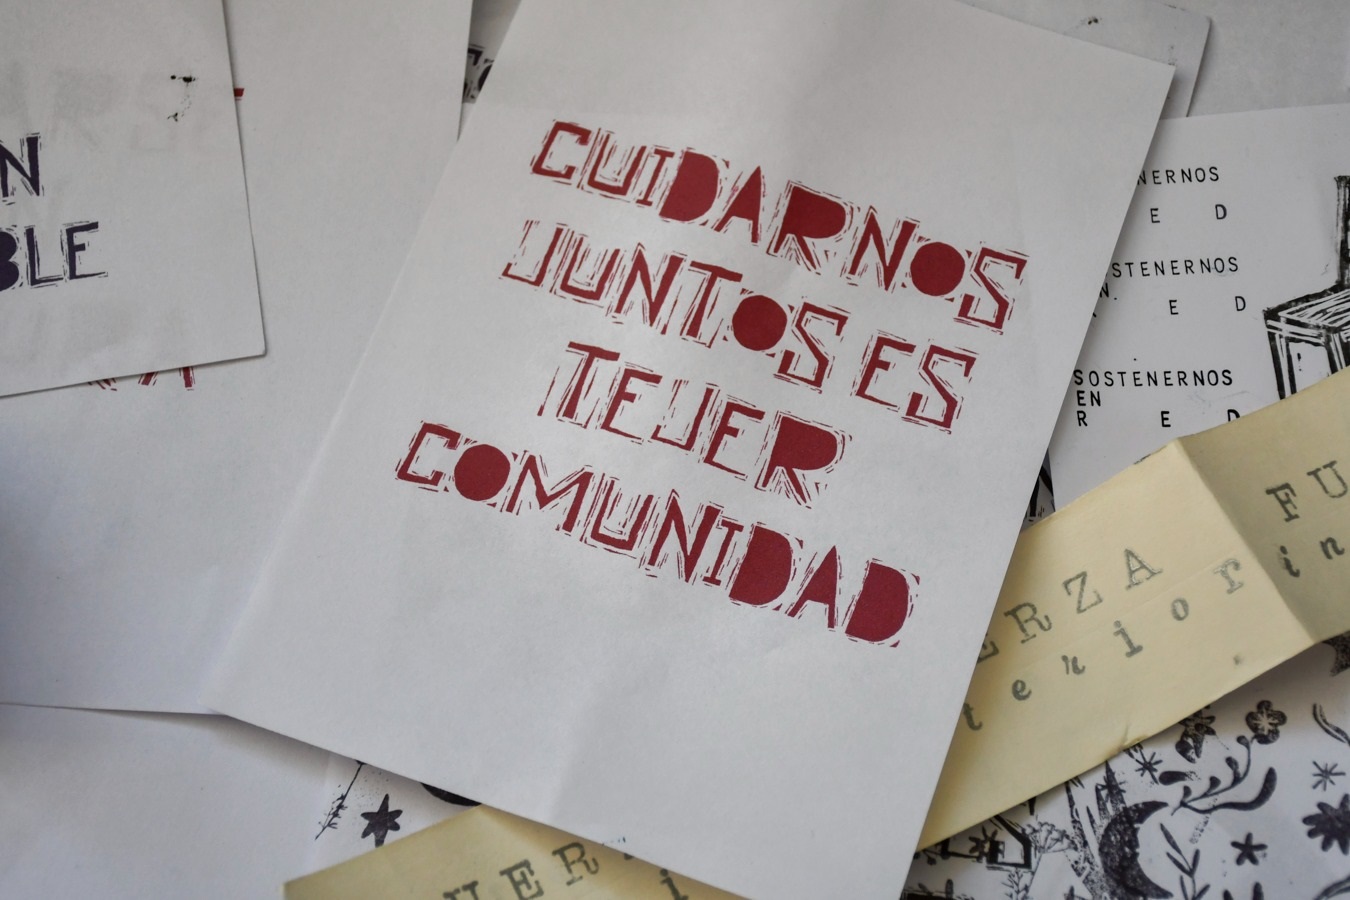 CUIDARNOS
JUNTOS ES
TEJER
COMUNIDAD
N
BLE
NERNOS
E D
STENERNOS
N.
E D
SOSTENERNOS
EN
R E D
ERZA
terior
FU
in
UER
i